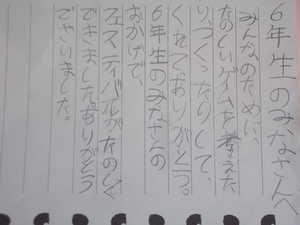 6年生のみなさんへ
みんなのために、
たのしいゲイムを考えた
り、つくったりして、
くれておりがとう。
6年生のみなさんの
おかげで、
フェスティバルがたのしく
できました。ありがとう
ございました。